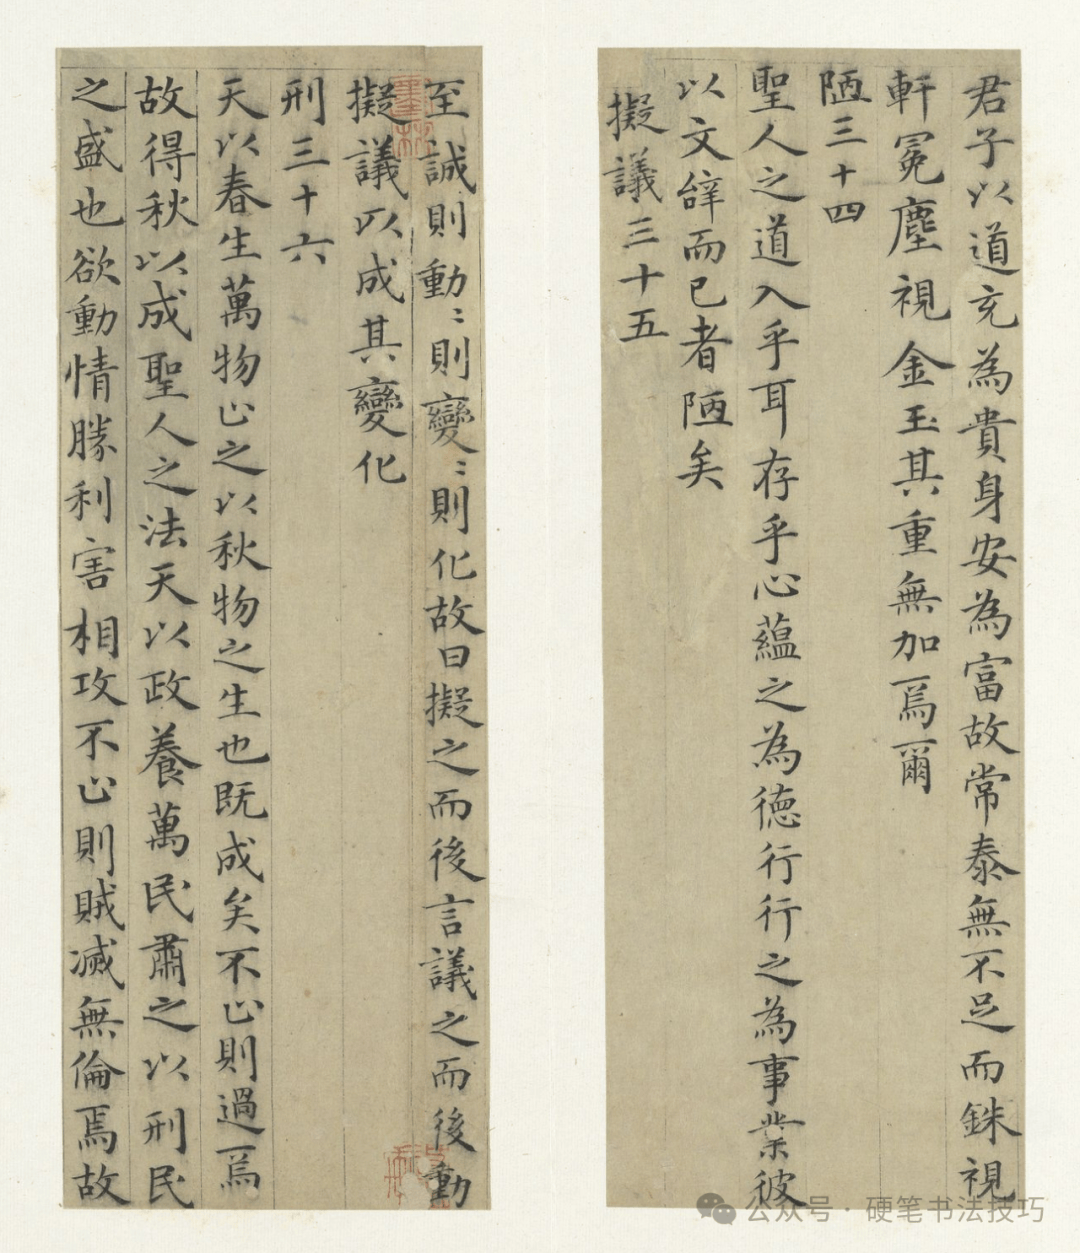 君子以道充為貴身安為富故常泰無不足而銖視
軒冕塵視金玉其重無加焉爾
陋三十四
聖人之道入乎耳存乎心蘊之為徳行行之為事業彼
以文辭而已者陋矣
擬議三十五
至誠則動〻則變〻則化故曰擬之而後言議之而後動
擬議以成其變化
刑三十六
天以春生萬物止之以秋物之生也既成矣不止則過焉
故得秋以成聖人之法天以政養萬民肅之以刑民
之盛也欲動情勝利害相攻不止則賊滅無倫焉故
公众号·硬笔书法技巧